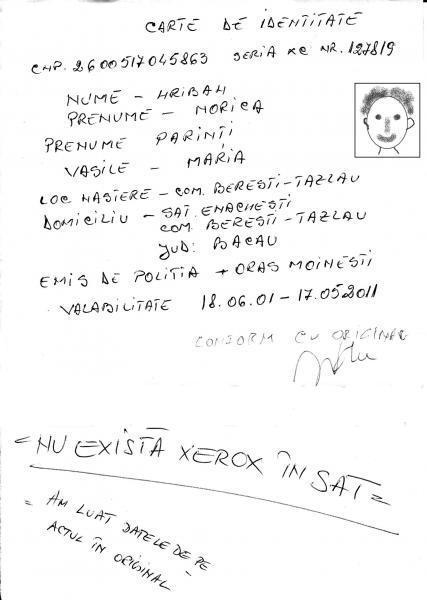 CARTE DE IDENTITATE
CNP. 2600517045863 SERIA XC NR. 127819
NUME – HRIBAN
PRENUME – NORICA
PRENUME PARINȚI
VASILE – MARIA
LOC NASTERE – COM. BERESTI-TAZLAU
DOMICILIU – SAT. ENACHESTI
COM. BERESTI-TAZLAU
JUD: BACAU
EMIS DE POLITIA + ORAS MOINESTI
VALABILITATE 18.06.01 – 17.05.2011
CONFORM CU ORIGINAL
= NU EXISTĂ XEROX ÎN SAT =
= AM LUAT DATELE DE PE
ACTUL ÎN ORIGINAL